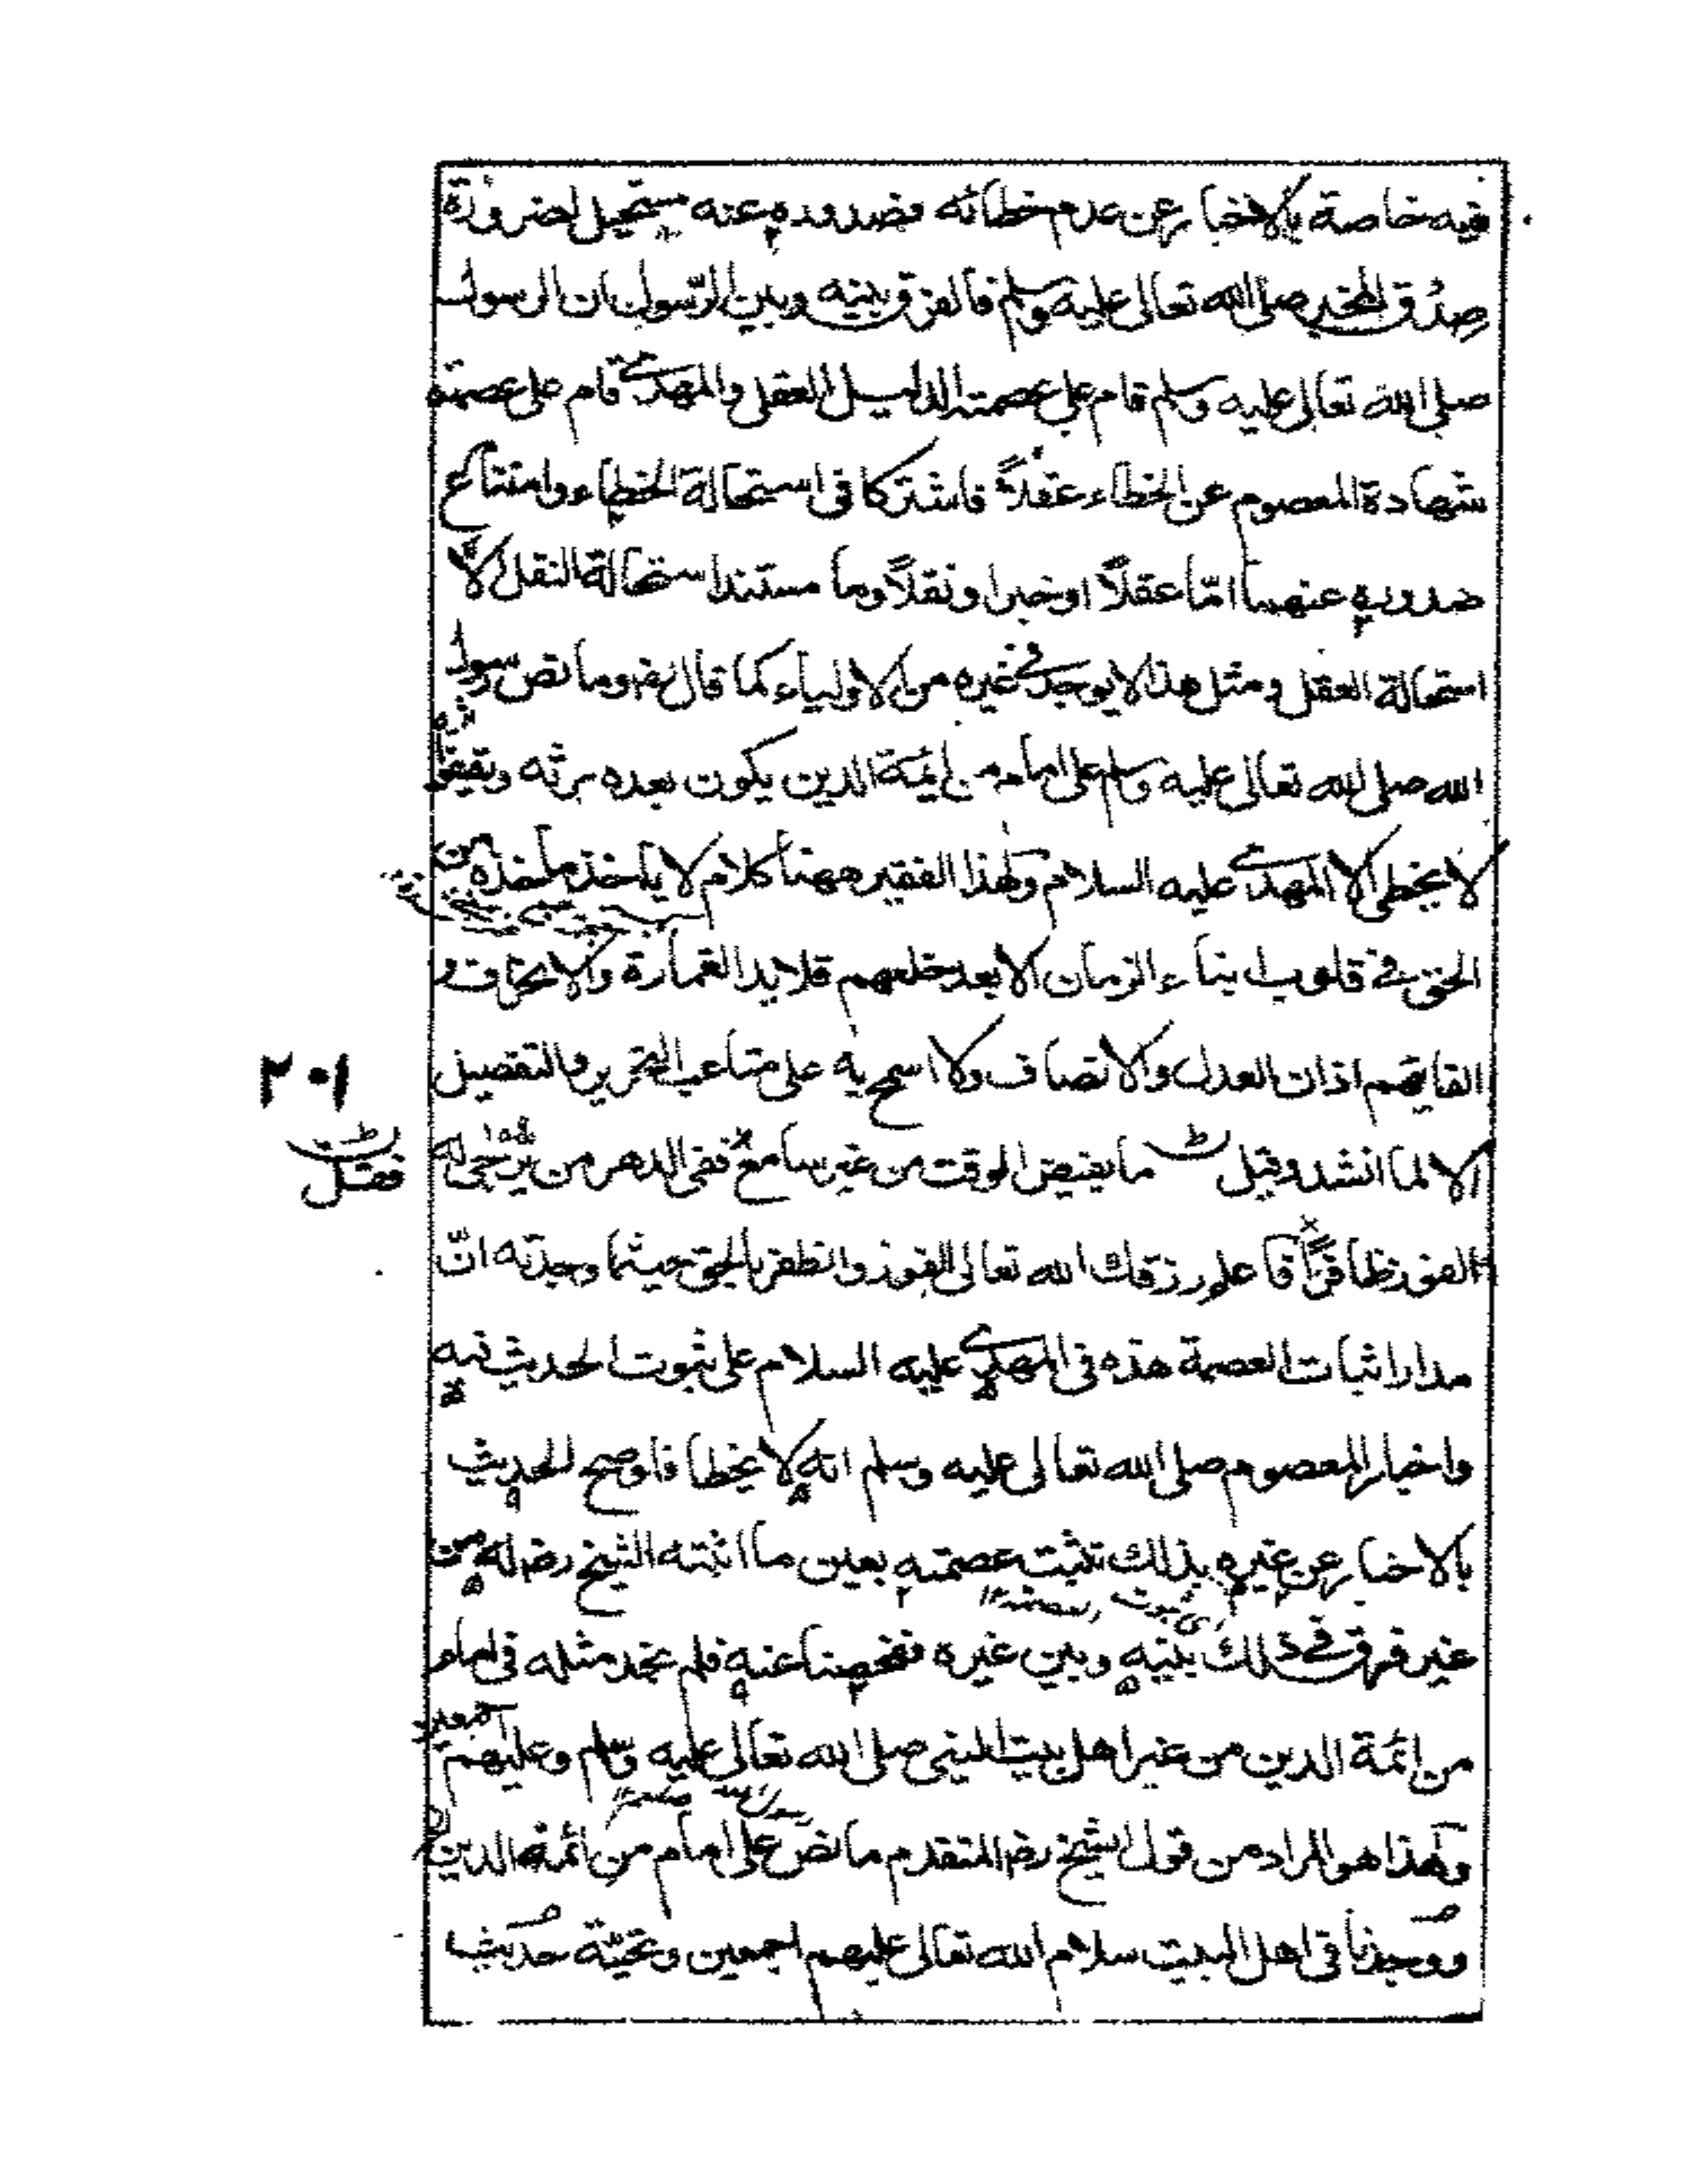 فيه خاصة بالاخبار عن عدم خطائه فصدوره عنه مستحيل لضرورة
صدق المخبر صلى الله تعالى عليه وسلم فالفرق بينه وبين الرسول ان الرسول
صلى الله تعالى عليه وسلم قام على عصمته الدليل العقلى والمهدى قام على عصمته
شهادة المعصوم عن الخطاء عقلاً فاشتركا فى استحالة الخطاء وامتناع
صدوره عنهما امّا عقلاً او خبرا ونقلاً وما مستند استحالة النقل الّا
استحالة العقل ومثل هذا لا يوجد فى غيره من الاولياء كما قال رضه وما نص رسول
الله صلى الله تعالى عليه وسلم على امام من ائمة الدين يكون بعده يرثه ويقفو اثره
لا يخطى الا المهدى عليه السلام ولهذا الفقير ههنا كلام لا يأخذ مأخذه من
الحق فى قلوب ابناء الزمان الا بعد خلعهم قلايد الغمارة والانحراف و
القايهم اذان العدل والانصاف ولا اسمح به على متاعب التحرير والتفصيل
الا لما انشد وقيل ما يفيض الوقت من غير سامع ففى الدهر من يرجى له
الفوز ظافرًا فاعلم رزقك الله تعالى الفوز والظفر بالحق حيثما وجدته انّ
مدار اثبات العصمة هذه فى المهدى عليه السلام على ثبوت الحديث فيه
واخبار المعصوم صلى الله تعالى عليه وسلم انه لا يخطا فلو صح الحديث
بالاخبار عن غيره بذلك تثبت عصمته بعين ما اثبته الشيخ رضه له من
غير فرق فى ذلك بينه وبين غيره ففحصنا عنه فلم نجد مثله فى امام
من ائمة الدين من غير اهل بيت النبى صلى الله تعالى عليه وسلم وعليهم اجمعين
وهذا هو المراد من قول الشيخ رضه المتقدم ما نص على امام من ائمة الدين
ووجدنا فى اهل البيت سلام الله تعالى عليهم اجمعين وتحيّة حديث
٢٠١
فقل